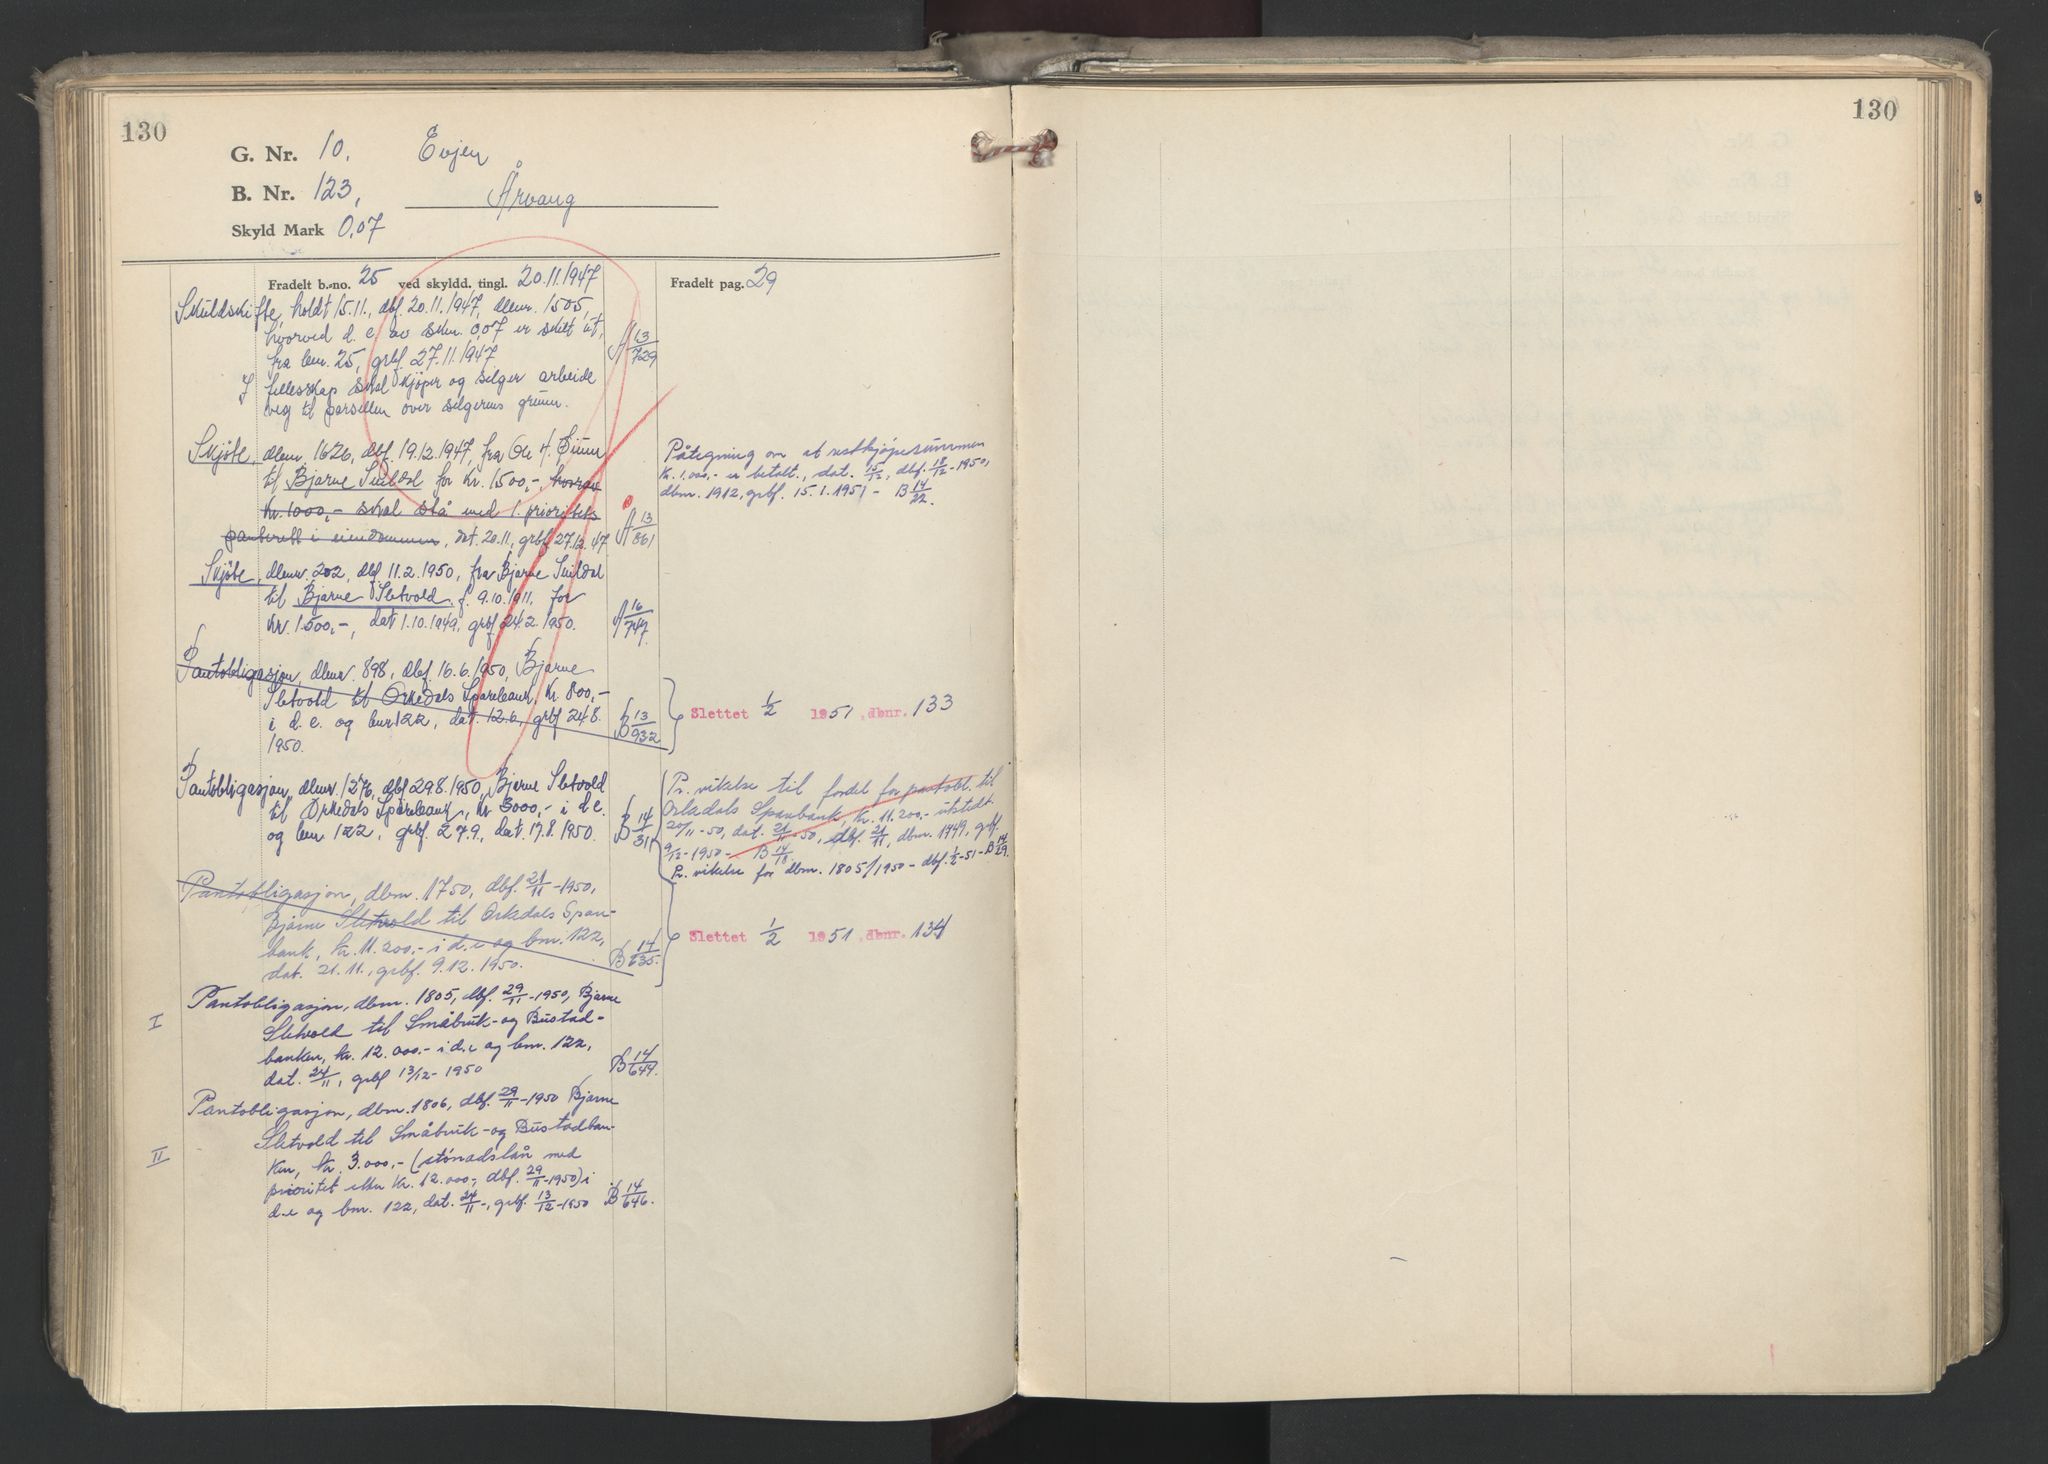 130
G. Nr. 10, Evjen
B. Nr. 123, Årvang
Skyld Mark 0,07
Fradelt b.-no. 25 ved skyldd. tingl. 20.11.1947
Fradelt pag. 29
Skuldskifte, holdt 15.11., dbf. 20.11.1947, dbnr. 1505,
hvorved d. e. av skm. 0,07 er skilt ut
fra bnr. 25, grbf. 27.11.1947
A 13/729
I fellesskap skal kjøper og selger arbeide
veg til parsellen over selgerens grunn.
Skjøte, dbnr. 1626, dbf. 19.12.1947, fra Ole H.
til Bjarne for kr. 1500,- hvorav
kr. 1000,- skal stå med 1. prioritets
panterett i eiendommen, dat. 20.11, grbf. 27.12.47
A 13/861
Påtegning om at restkjøpesummen
Kr. 1.000,- er betalt, dat. 15/12, dbf. 18/12-1950,
dbnr. 1912, grbf. 15.1.1951 - B 14/22.
Skjøte, dbnr. 202, dbf. 11.2.1950, fra Bjarne
til Bjarne Sletvold, f. 9.10.1911, for
kr. 1500,-, dat 1.10.1949, grbf 24.2.1950.
A 16/747
Pantobligasjon, dbnr. 898, dbf. 16.6.1950, Bjarne
Sletvold til Orkedals Sparebank, kr. 800,-
i d. e. og bnr 122, dat. 12.6, grbf 24.8.
1950.
B 13/932
Slettet 1/2 1951, dbnr. 133
Pantobligasjon, dbnr. 1276, dbf 29.8.1950, Bjarne Sletvold
til Orkedals Sparebank, kr 3000,- i d. e.
og bnr 122, grbf. 27.9., dat. 17.8.1950.
B 14/311
Pr. vikelse til fordel for pantobl. til
Orkdals Sparebank, kr. 11.200,- utstedt
20/11-50, dat. 21/11-50, dbf. 21/11, dbnr. 1749, grbf.
9/12-1950 - B 14/18.
Pr. vikelse for dbnr. 1805/1950 - dbf. 1/2-51 - B 14/29.
Pantobligasjon, dbnr. 1750, dbf. 21/11-1950,
Bjarne Sletvold til Orkdals Spare-
bank, kr. 11.200,- i d. e og bnr. 122,
dat. 21.11., grbf. 9.12.1950.
B 14/635.
Slettet 1/2 1951, dbnr. 134
I Pantobligasjon, dbnr. 1805, dbf. 29/11-1950, Bjarne
Sletvold til Småbruk- og Bustad-
banken, kr. 12.000.- i d. e og bnr. 122,
dat. 24/11, grbf 13/12-1950
B 14/644.
Pantobligasjon, dbnr. 1806, dbf. 29/11-1950 Bjarne
Sletvold til Småbruk- og Bustadban-
II ken, kr. 3.000,- (stønadslån med
prioritet etter kr. 12.000,-, dbf. 29/11-1950) i
d. e og bnr. 122, dat. 24/11-, grbf. 13/12-1950
B 14/646.
130